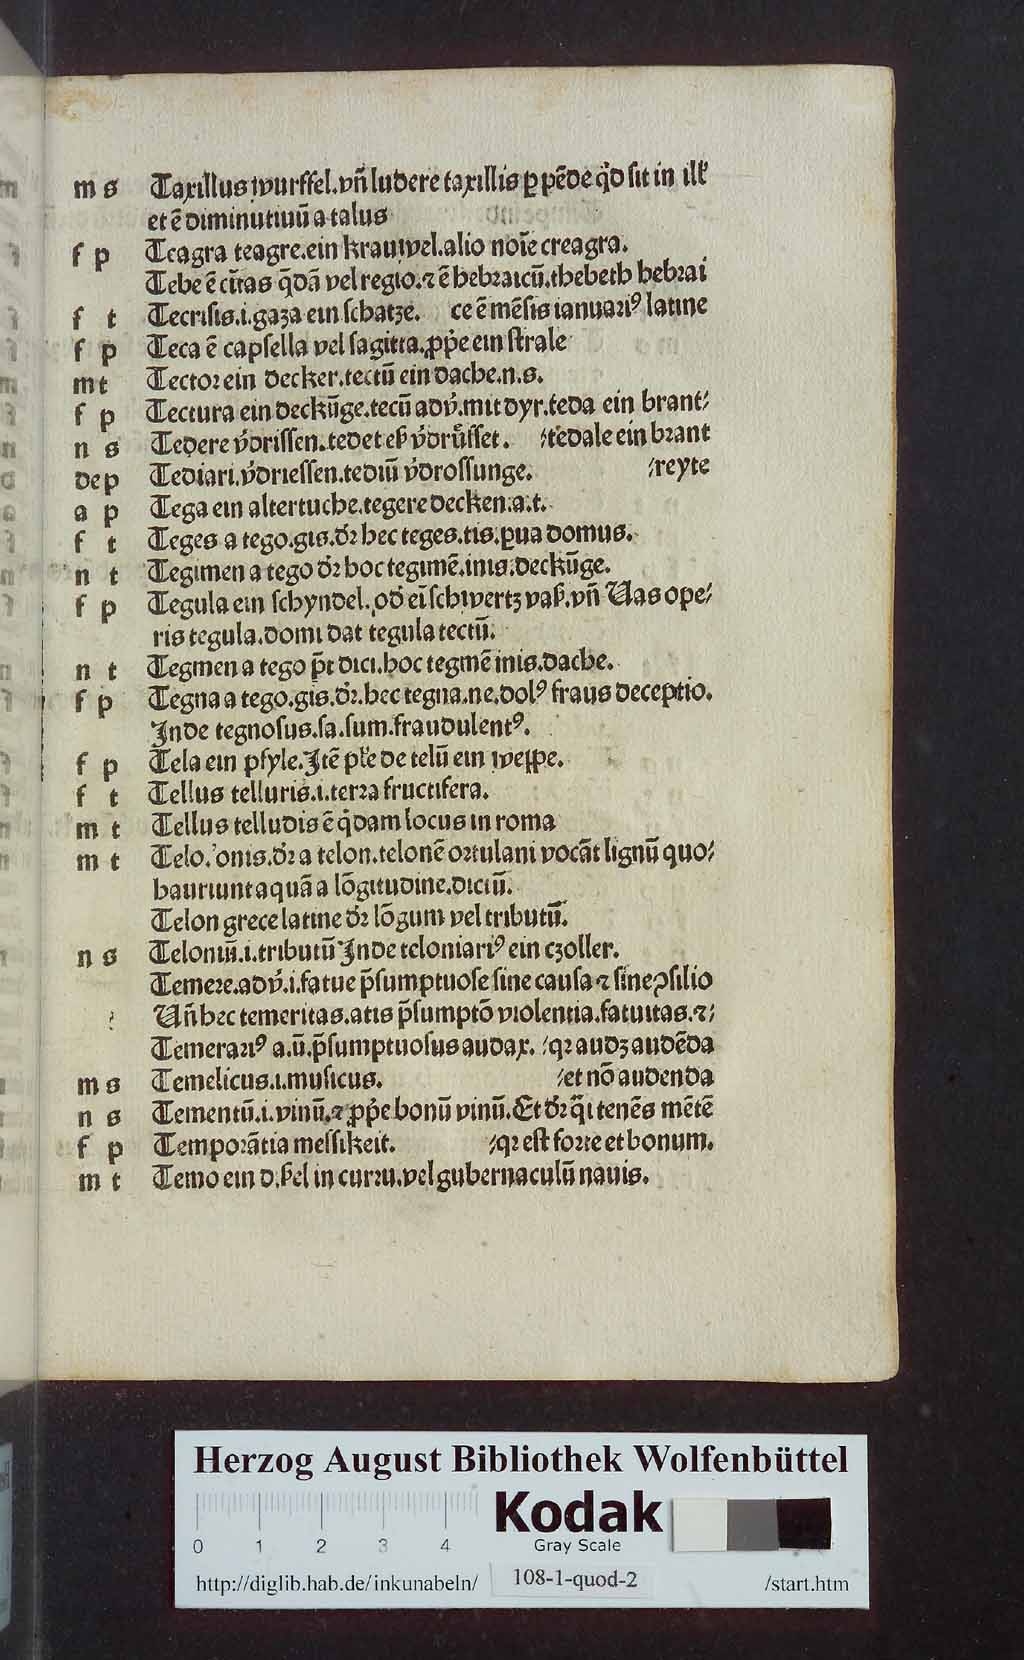 m s Taxillus wurffel.vñ ludere taxillis ꝑ pẽde q̇d sit in ill'
et ẽ diminutiuũ a talus
f p Teagra teagre.ein krauwel.alio noĩe creagra.
Tebe ẽ cĩtas q̃dã vel regio.⁊ ẽ hebraicũ.thebeth hebrai
f t Tecrisis.i.gaza ein schatze. ce ẽ mẽsis ianuariꝰ latine
f p Teca ẽ capsella vel sagitta.ꝓp̃e ein strale
m t Tector ein decker.tectũ ein dache.n.s.
f p Tectura ein deckũge.tecũ adṽ.mit dyr.teda ein brant⸗
n s Tedere v̓drissen.tedet eß v̓drüsset. ⸗tedale ein brant
dep Tediari.v̓driessen.tediũ v̓drossunge. ⸗reyte
a p Tega ein altertuche.tegere decken.a.t.
f t Teges a tego.gis.dr̃ hec teges.tis.ꝑua domus.
n t Tegimen a tego dr̃ hoc tegimẽ.inis.deckũge.
f p Tegula ein schyndel.od̓ eĩ schwertz vaß.vñ Uas ope⸗
ris tegula.domi dat tegula tectũ.
n t Tegmen a tego p̃t dici.hoc tegmẽ inis.dache.
f p Tegna a tego.gis.dr̃.hec tegna.ne.dolꝰ fraus deceptio.
Jnde tegnosus.sa.sum.fraudulentꝰ.
f p Tela ein pfyle.Jtẽ pl'e de telũ ein weppe.
f t Tellus telluris.i.terra fructifera.
m t Tellus telludis ẽ q̇dam locus in roma
m t Telo.onis.dr̃ a telon.telonẽ ortulani vocãt lignũ quo⸗
hauriunt aquã a lõgitudine.dictũ.
Telon grece latine dr̃ lõgum vel tributũ.
n s Teloniũ.i.tributũ Jnde teloniariꝰ ein czoller.
Temere.adṽ.i.fatue p̃sumptuose sine causa ⁊ sine ꝯsilio
Uñ hec temeritas.atis p̃sumptõ violentia.fatuitas.⁊⸗
Temerariꝰ a.ũ.p̃sumptuosus audax. ⸗qꝛ audꝫ audẽda
m s Temelicus.i.musicus. ⸗et nõ audenda
n s Tementũ.i.vinũ.⁊ ꝓp̃e bonũ vinũ.Et dr̃ q̃i tenẽs mẽtẽ
f p Temporãtia messikeit. ⸗qꝛ est forte et bonum.
m t Temo ein d.ßel in curru.vel gubernaculũ nauis.
Herzog August Bibliothek Wolfenbüttel
Kodak
Gray Scale
0 1 2 3 4
http://diglib.hab.de/inkunabeln/ 108-1-quod-2 /start.htm